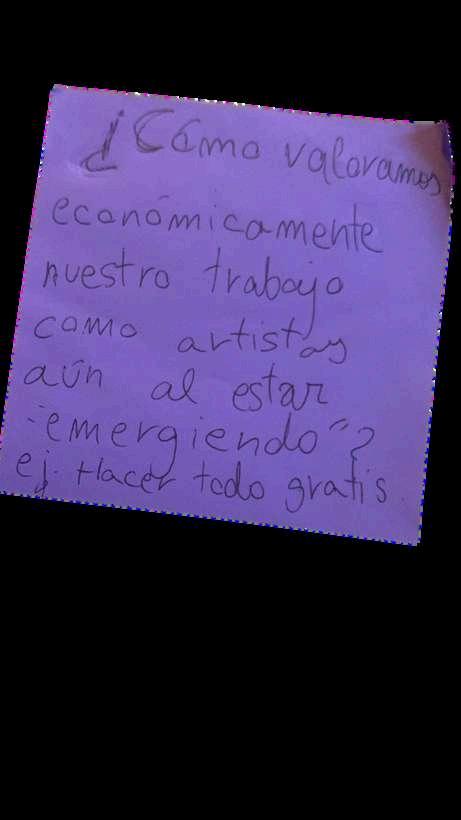 ¿Cómo valoramos
económicamente
nuestro trabajo
como artistas
aún al estar
"emergiendo"?
ej. Hacer todo gratis